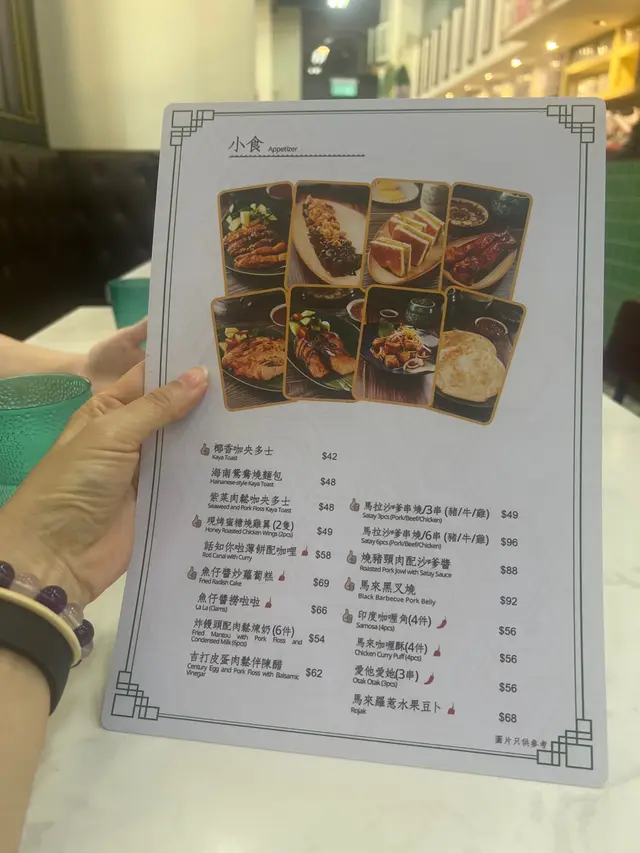 小食 Appetizer
椰香咖央多士 $42
Kaya Toast
海南鴛鴦燒麵包 $48
Hainanese-style Kaya Toast
紫菜肉鬆咖央多士 $48
Seaweed and Pork Floss Kaya Toast
現烤蜜糖燒雞翼 (2隻) $49
Honey Roasted Chicken Wings (2pcs)
話知你啦薄餅配咖喱 $58
Roti Canai with Curry
魚仔醬炒蘿蔔糕 $69
Fried Radish Cake
魚仔醬撈啦啦 $66
La La (Clams)
炸饅頭配肉鬆煉奶 (6件) $54
Fried Mantou with Pork Floss and
Condensed Milk (6pcs)
吉打皮蛋肉鬆伴陳醋 $62
Century Egg and Pork Floss with Balsamic
Vinegar
馬拉沙爹串燒/3串 (豬/牛/雞) $49
Satay 3pcs (Pork/Beef/Chicken)
馬拉沙爹串燒/6串 (豬/牛/雞) $96
Satay 6pcs (Pork/Beef/Chicken)
燒豬頸肉配沙爹醬 $88
Roasted Pork Jowl with Satay Sauce
馬來黑叉燒 $92
Black Barbecue Pork Belly
印度咖喱角(4件) $56
Samosa (4pcs)
馬來咖喱酥(4件) $56
Chicken Curry Puff (4pcs)
愛他愛她(3串) $56
Otak Otak (3pcs)
馬來羅惹水果豆卜 $68
Rojak
圖片只供參考